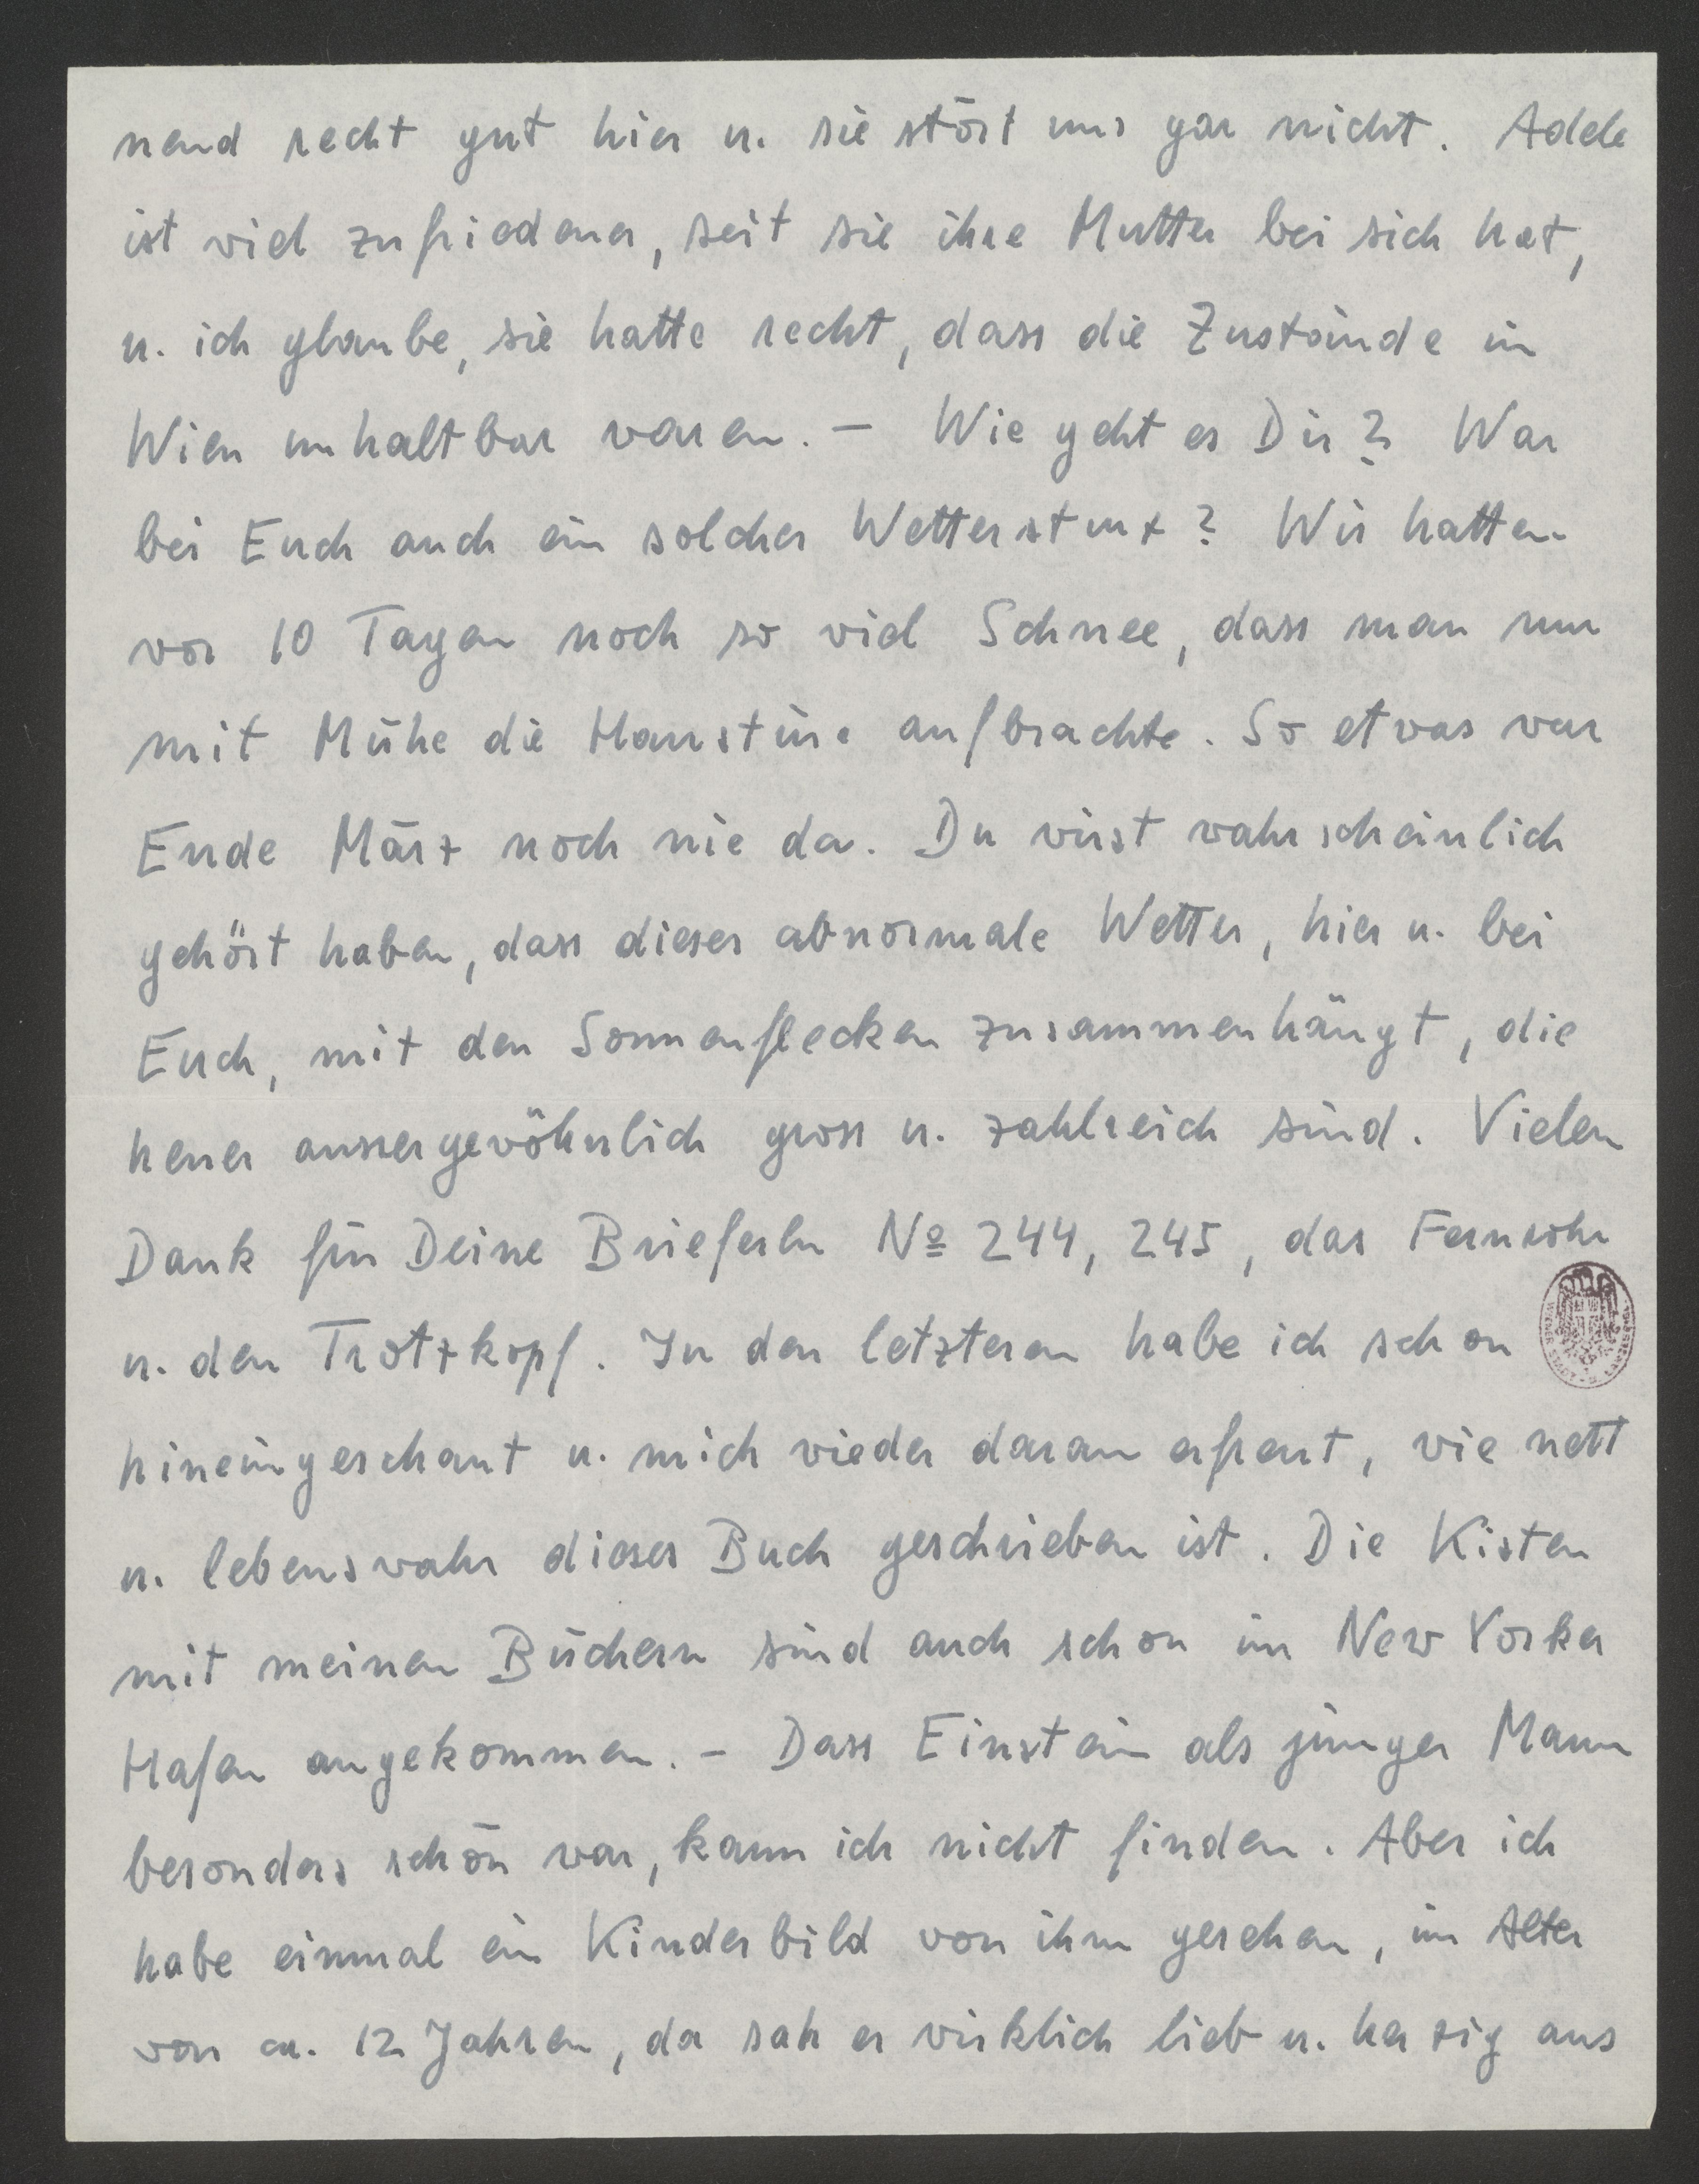 nend recht gut hier u. sie stört uns gar nicht. Adele
ist viel zufriedener, seit sie ihre Mutter bei sich hat,
u. ich glaube, sie hatte recht, dass die Zustände in
Wien unhaltbar waren. – Wie geht es Dir? War
bei Euch auch ein solcher Wettersturz? Wir hatten
vor 10 Tagen noch so viel Schnee, dass man nur
mit Mühe die Haustüre aufbrachte. So etwas war
Ende März noch nie da. Du wirst wahrscheinlich
gehört haben, dass dieses abnormale Wetter, hier u. bei
Euch, mit den Sonnenflecken zusammenhängt, die
heuer aussergewöhnlich gross u. zahlreich sind. Vielen
Dank für Deine Brieferln Nº 244, 245, das Fernrohr
u. den Trotzkopf. In den letzteren habe ich schon
hineingeschaut u. mich wieder daran erfreut, wie nett
u. lebenswahr dieses Buch geschrieben ist. Die Kisten
mit meinen Büchern sind auch schon im New Yorker
Hafen angekommen. – Dass Einstein als junger Mann
besonders schön war, kann ich nicht finden. Aber ich
habe einmal ein Kinderbild von ihm gesehen, im Alter
von ca. 12 Jahren, da sah er wirklich lieb u. herzig aus